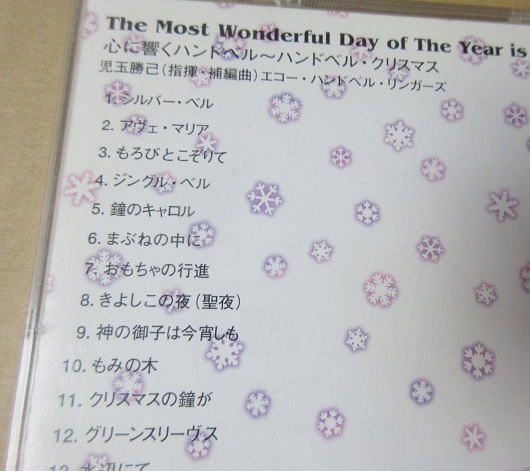 The Most Wonderful Day of The Year is
心に響くハンドベル～ハンドベル・クリスマス
児玉勝己(指揮・補編曲)エコー・ハンドベル・リンガーズ
1. シルバー・ベル
2. アヴェ・マリア
3. もろびとこぞりて
4. ジングル・ベル
5. 鐘のキャロル
6. まぶねの中に
7. おもちゃの行進
8. きよしこの夜(聖夜)
9. 神の御子は今宵しも
10. もみの木
11. クリスマスの鐘が
12. グリーンスリーヴス
13. 水辺にて